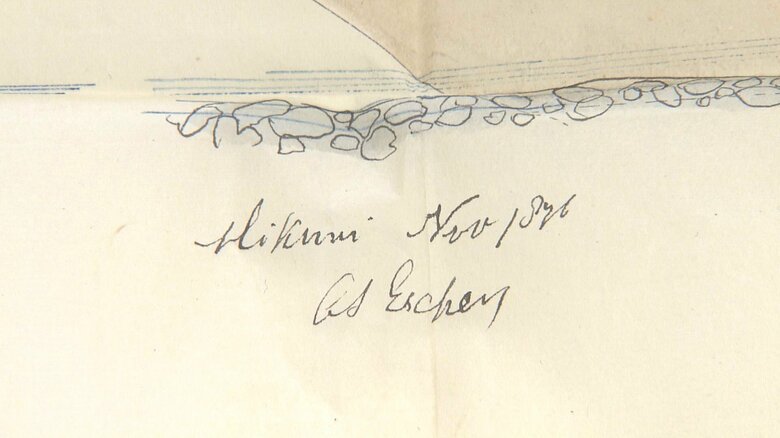 Mikuni Nov 1876
GA Escher